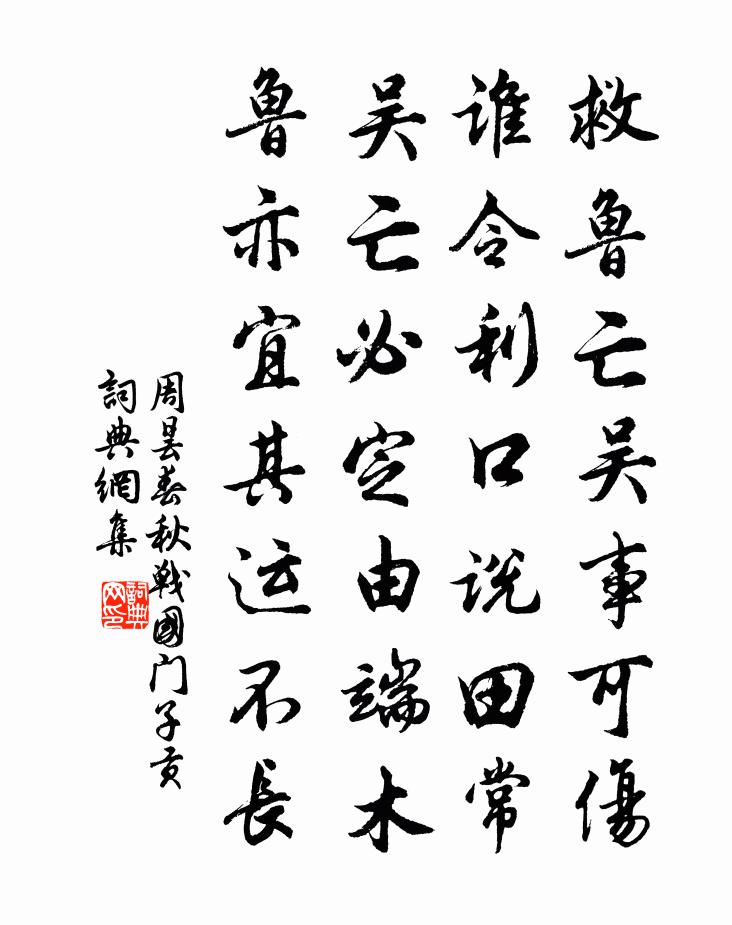 救鲁亡吴事可傷
谁令利口说田常
吴亡必定由端木
鲁亦宜其运不長
周昙春秋戦國门子贡
詞典網集
詞典
网印